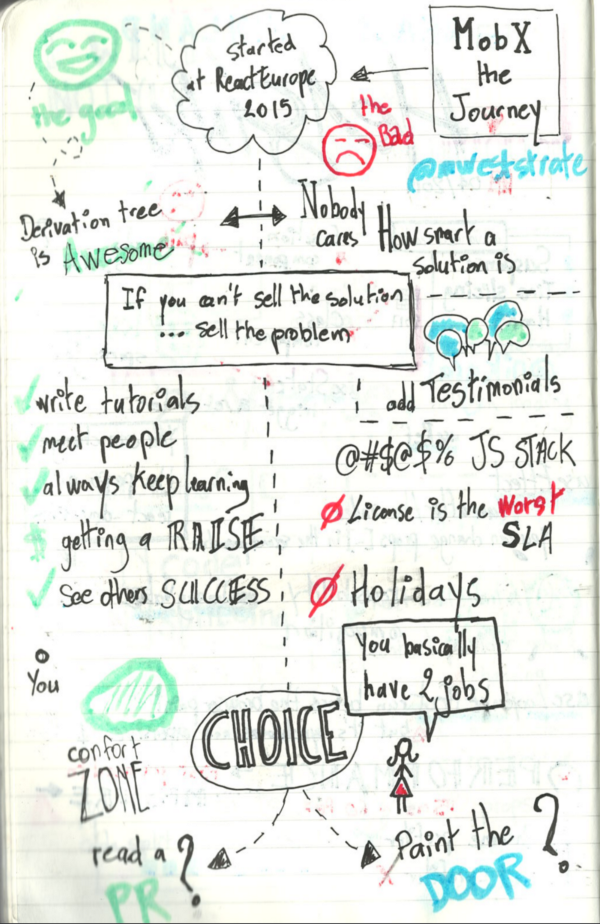 MobX
the
Journey
@mweststrate
started
at ReactEurope
2015
the good
the
Bad
Derivation tree
is Awesome
Nobody
cares
How smart a
solution is
If you can't sell the solution
... sell the problem
add Testimonials
write tutorials
meet people
always keep learning
$ getting a RAISE
see others SUCCESS
@#$@$% JS STACK
License is the worst
SLA
Holidays
You basically
have 2 jobs
You
confort
ZONE
CHOICE
read a
PR ?
Paint the
DOOR ?